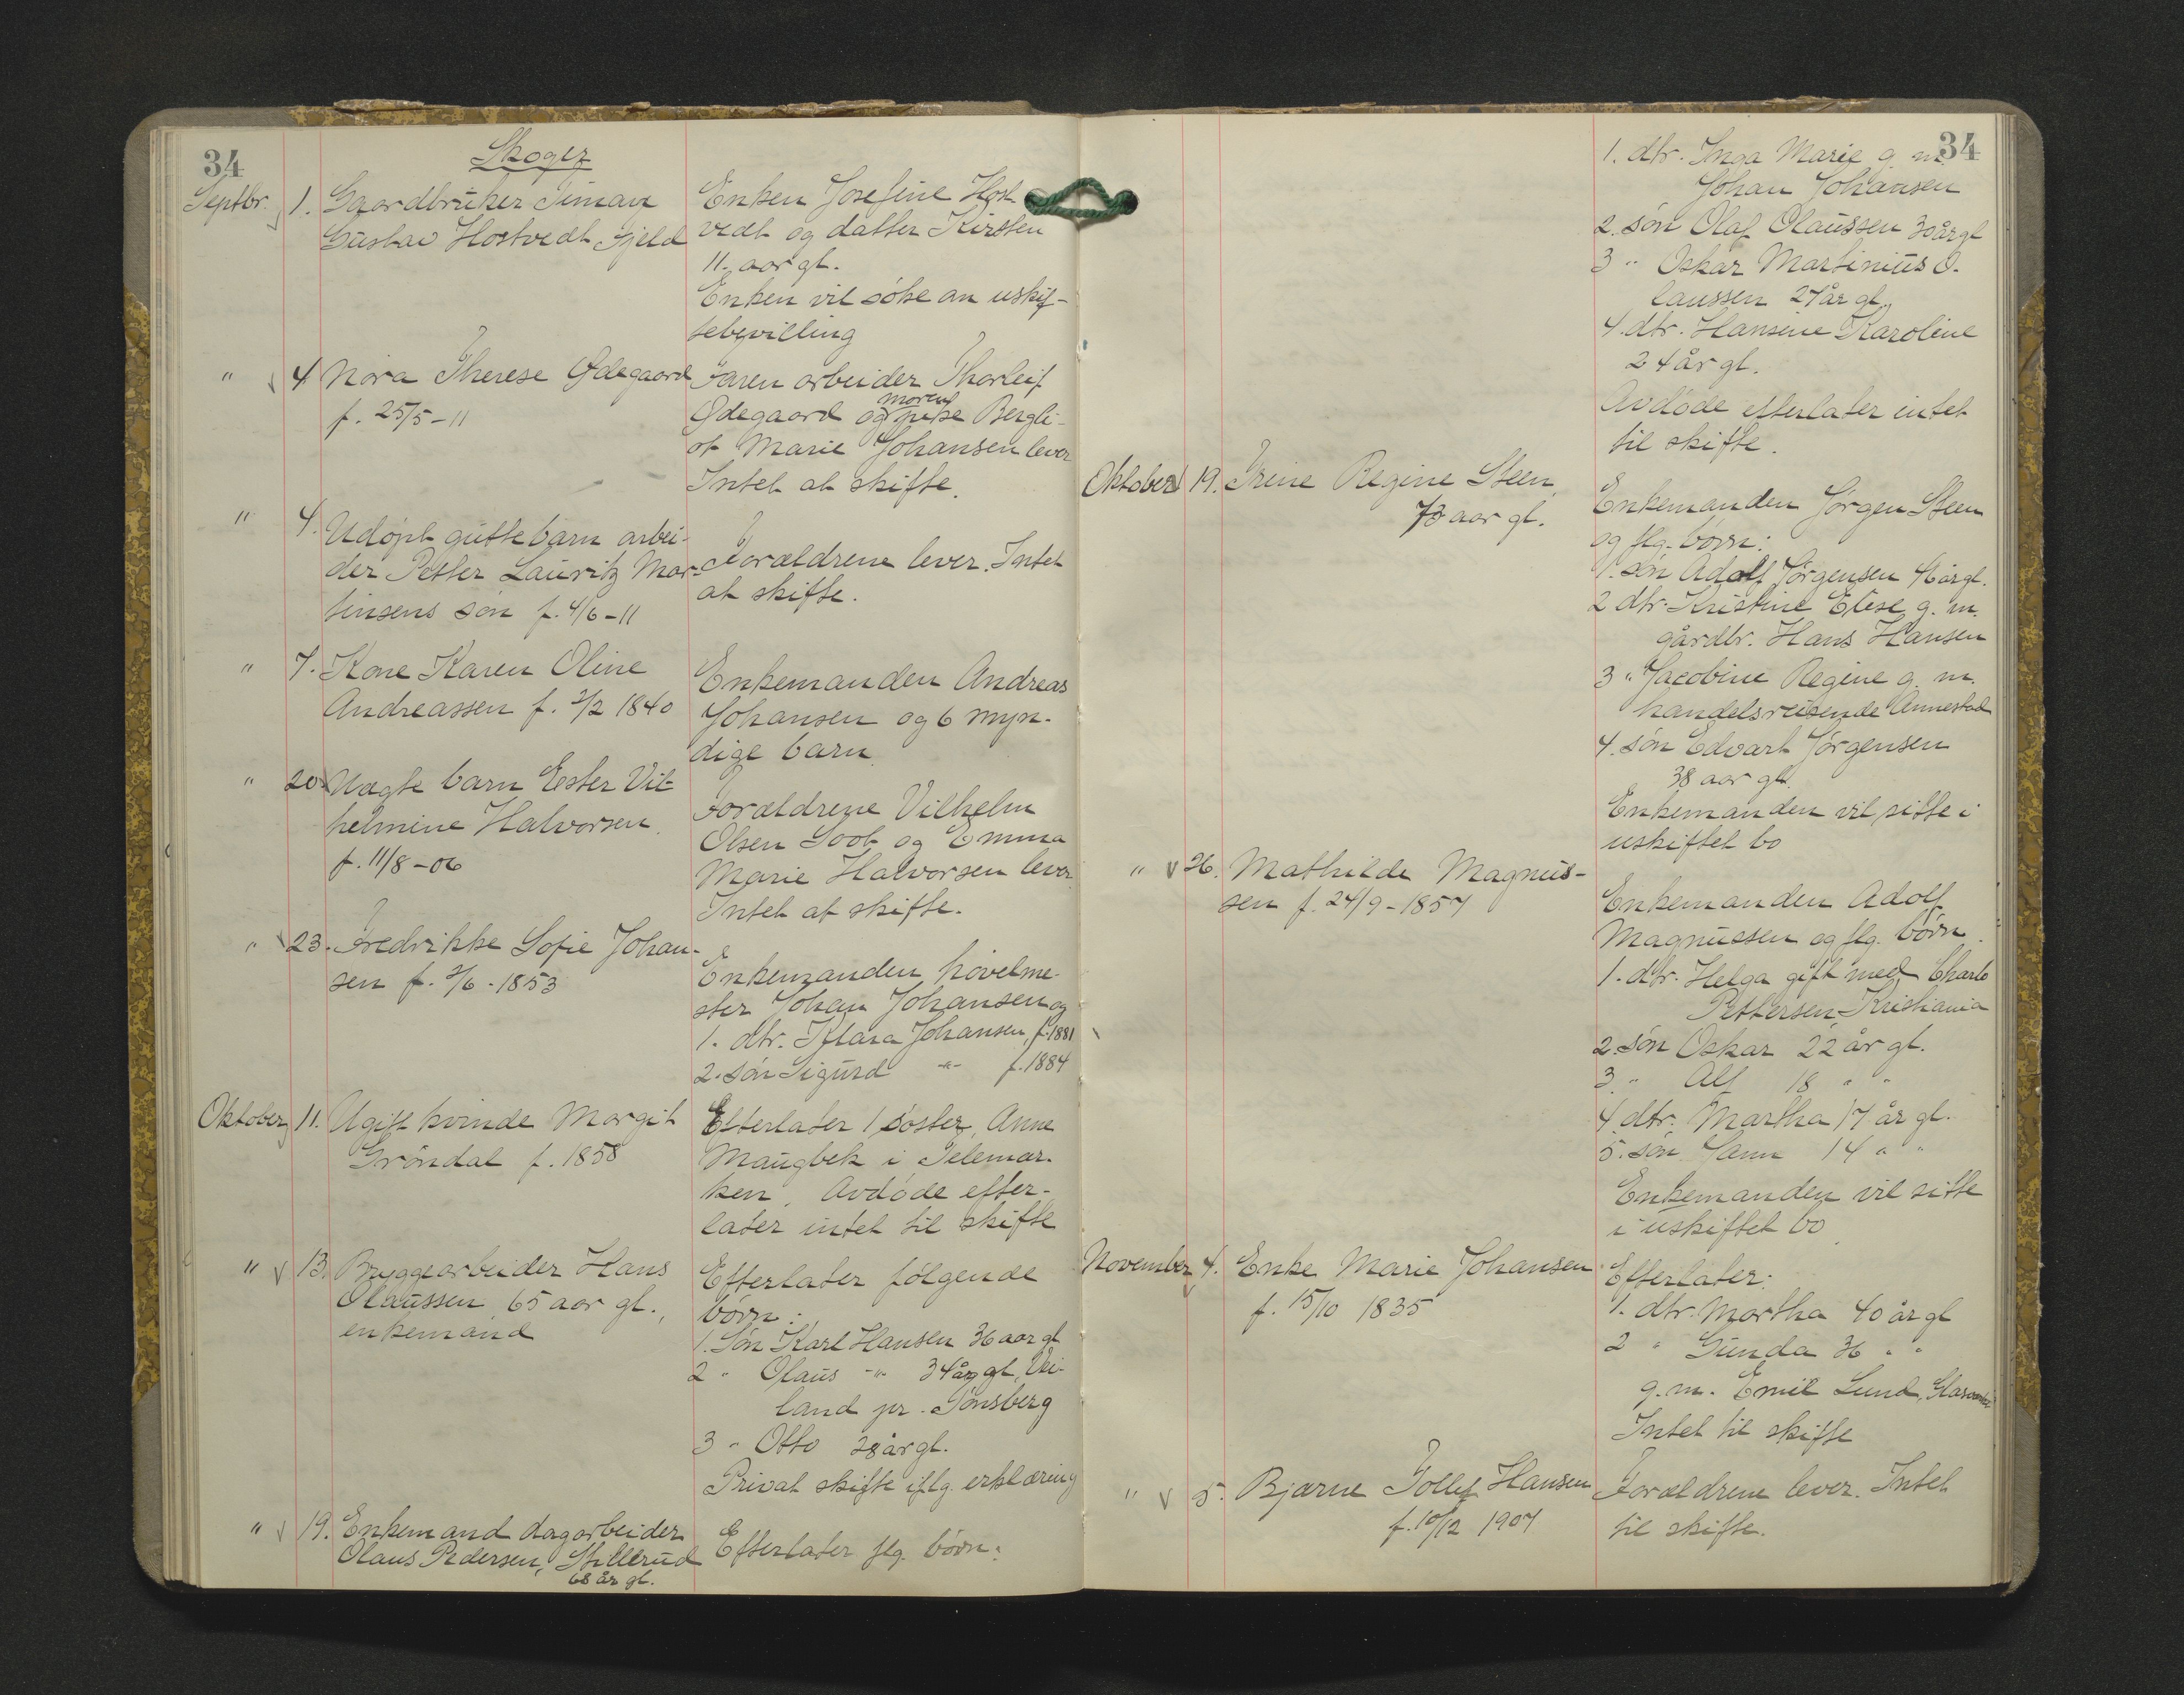 34
Skoger
Septbr. 1. Gaardbruker Timan
Gustav Hostvedt Fjeld
Enken Josefine Host
vedt og datter Kirsten
11. aar gl.
Enken vil søke om uskif-
tebevilling
" 4 Nora Therese Ødegaard
f. 25/5-11
Faren arbeider Thorleif
Ødegaard og moren pike Bergli-
ot Marie Johansen lever
Intet at skifte.
" 4. Udøpt guttebarn arbei-
der Petter Lauritz Mar-
tinsens søn f. 4/6-11
Forældrene lever. Intet
at skifte.
" 7. Kone Karen Oline
Andreassen f. 2/2 1840
Enkemanden Andreas
Johansen og 6 myn-
dige barn.
" 20 Uægte barn Ester Vil
helmine Halvorsen
f. 11/8-06
Forældrene Vilhelm
Olsen Soot og Emma
Marie Halvorsen lever
Intet at skifte.
" 23. Fredrikke Sofie Johan-
sen f. 2/6-1853
Enkemanden høvelme-
ster Johan Johansen og
1. dtr. Klara Johansen, f. 1881
2. søn Sigurd -"- f. 1884
Oktober 11. Ugift kvinde Margit
Grøndal f. 1858
Efterlater 1 søster, Anne
Maugbek i Telemar-
ken. Avdøde efter-
later intet til skifte
" 13. Bryggearbeider Hans
Olaussen 65 aar gl.,
enkemand
Efterlater følgende
børn:
1. Søn Karl Hansen 36 aar gl
2 " Olaus -"- 34 år gl, Vei-
land pr. Tønsberg
3 " Otto 28 år gl.
Privat skifte iflg. erklæring
" 19. Enkemand dagarbeider
Olaus Pedersen, Stillerud
68 år gl.
Efterlater flg. børn:
34
1. dtr. Inga Marie g. m.
Johan Johansen
2. søn Olaf Olaussen 30 år gl
3 " Oskar Martinius O-
laussen 27 år gl.
4. dtr. Hansine Karoline
24 år gl.
Avdøde efterlater intet
til skifte.
Oktober 19. Trine Regine Steen
73 aar gl.
Enkemanden Jørgen Steen
og flg. børn:
1. søn Adolf Jørgensen 46 år gl.
2 dtr. Kristine Elise g. m.
gårdbr. Hans Hansen
3 " Jacobine Regine g. m.
handelsreisende Annestad
4. søn Edvart Jørgensen
38 aar gl.
Enkemanden vil sitte i
uskiftet bo
" 26. Mathilde Magnus-
sen f. 24/9-1857
Enkemanden Adolf
Magnussen og flg. børn.
1. dtr. Helga gift med Charls
Pettersen Kristiania
2. søn Oskar 22 år gl.
3 " Alf 18 " "
4. dtr. Martha 17 år gl.
5. søn 14 " "
Enkemanden vil sitte
i uskiftet bo
November 4. Enke Marie Johansen
f. 15/10 1835
Efterlater:
1. dtr. Martha 40 år gl
2 " Gunda 36 " "
g. m. Emil Lund,
Intet til skifte
" 5. Bjarne Tollef Hansen
f. 10/12 1907
Forældrene lever. Intet
til skifte.